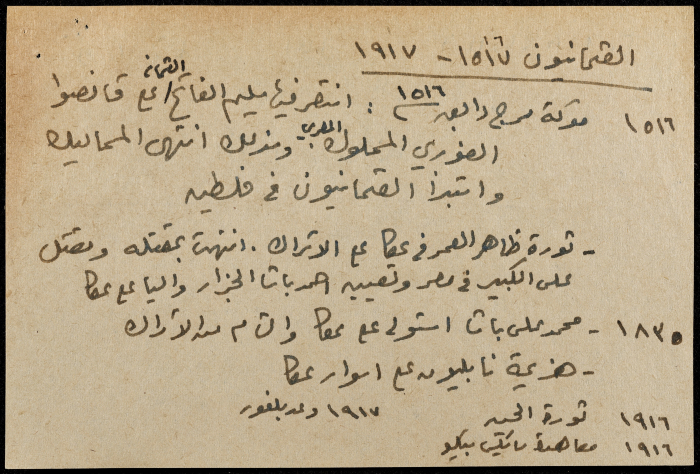 العثمانيون ١٥١٦ - ١٩١٧
١٥١٦ موقعة مرج دابق ١٥١٦ : انتصر فيها سليم الفاتح / العثماني على قانصوا
الغوري المملوك المصري وبذلك انتهى المماليك
وابتدأ العثمانيون في فلسطين
- ثورة ظاهر العمر في عكا على الاتراك . انتهت بمقتله ومقتل
على الكبير في مصر وتعيين احمد باشا الجزار واليا على عكا
١٨٣٠ - محمد على باشا استولى على عكا والشام من الأتراك
- هزيمة نابليون على اسوار عكا
١٩١٦ ثورة الحسين ١٩١٧ وعد بلفور
١٩١٦ معاهدة سايكس بيكو